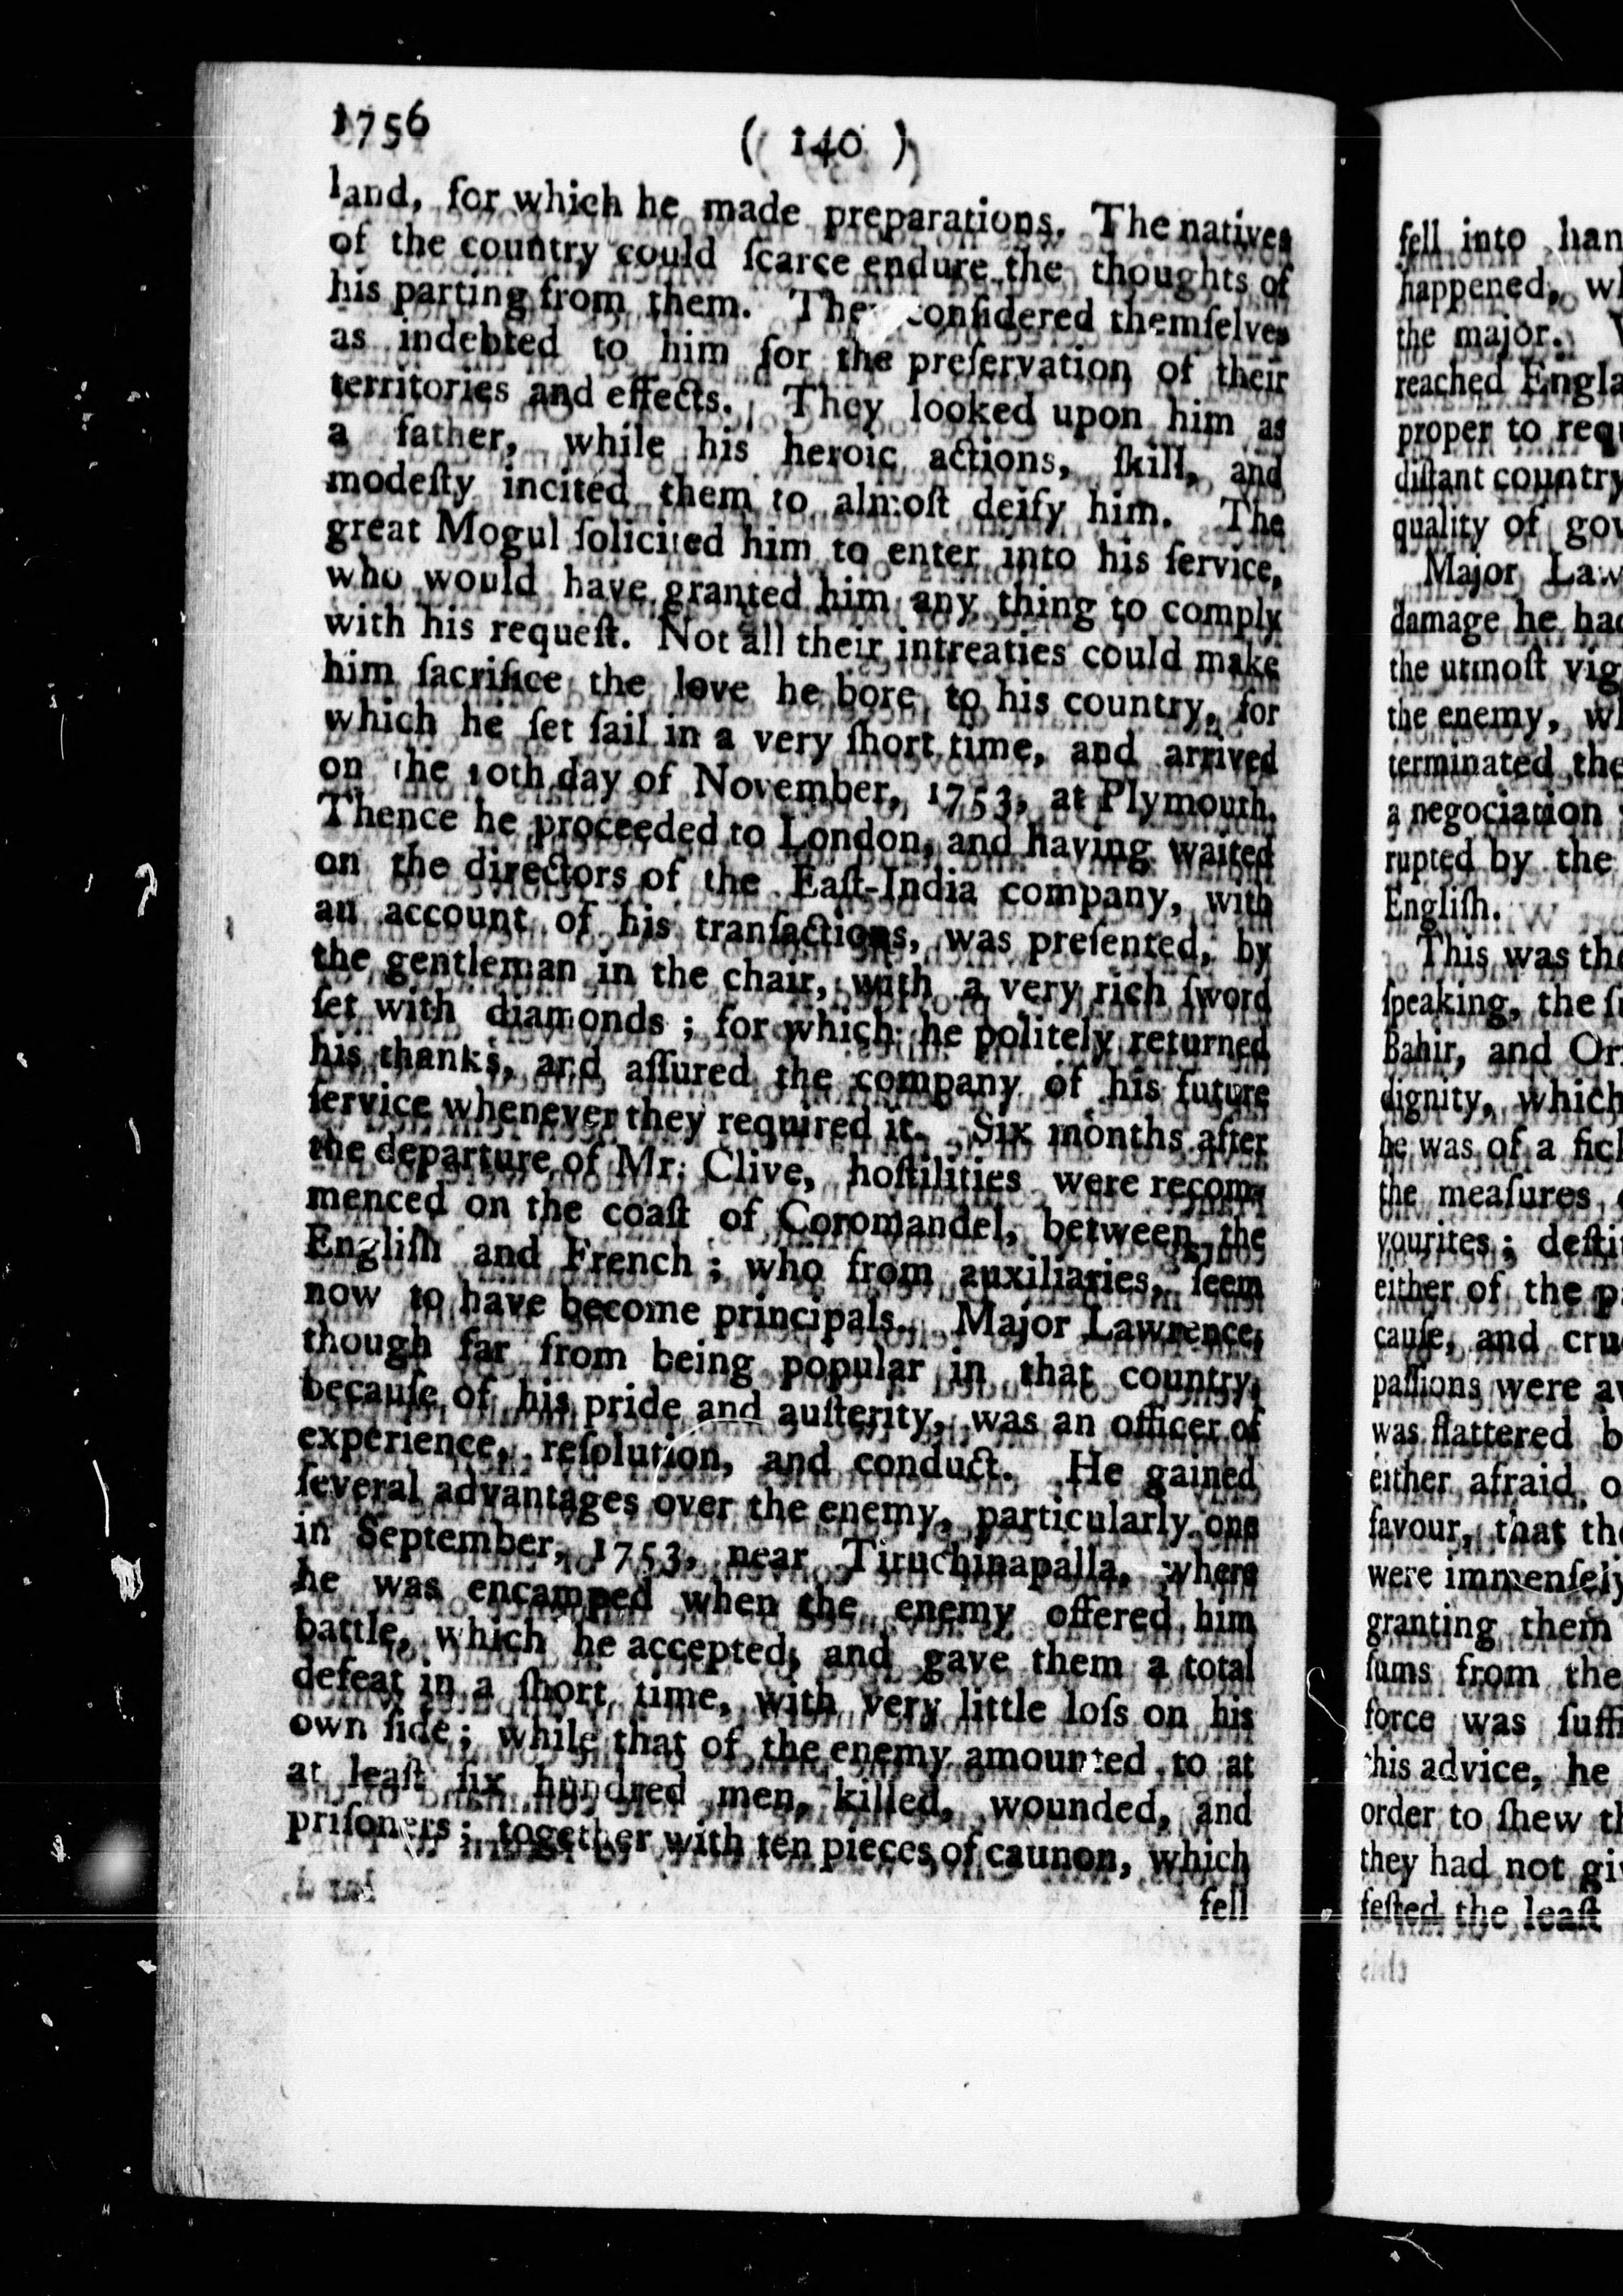 1756
( 140 )
land, for which he made preparations. The natives
of the country could ſcarce endure the thoughts of
his parting from them. They conſidered themſelves
as indebted to him for the preſervation of their
territories and effects. They looked upon him as
a father, while his heroic actions, ſkill, and
modeſty incited them to almoſt deify him. The
great Mogul ſolicited him to enter into his ſervice,
who would have granted him any thing to comply
with his requeſt. Not all their intreaties could make
him ſacrifice the love he bore to his country, for
which he ſet ſail in a very ſhort time, and arrived
on the 10th day of November, 1753, at Plymouth.
Thence he proceeded to London, and having waited
on the directors of the Eaſt-India company, with
an account of his tranſactions, was preſented, by
the gentleman in the chair, with a very rich ſword
ſet with diamonds ; for which he politely returned
his thanks, and aſſured the company of his future
ſervice whenever they required it. Six months after
the departure of Mr. Clive, hoſtilities were recom-
menced on the coaſt of Coromandel, between the
Engliſh and French ; who from auxiliaries, ſeem
now to have become principals. Major Lawrence,
though far from being popular in that country,
becauſe of his pride and auſterity, was an officer of
experience, reſolution, and conduct. He gained
ſeveral advantages over the enemy, particularly one
in September, 1753, near Tiruchinapalla, where
he was encamped when the enemy offered him
battle, which he accepted, and gave them a total
defeat in a ſhort time, with very little loſs on his
own ſide ; while that of the enemy amounted to at
at leaſt ſix hundred men, killed, wounded, and
priſoners ; together with ten pieces of caunon, which
fell
fell into han
happened, w
the major.
reached Engla
proper to req
diſtant country
quality of go
Major Law
damage he ha
the utmoſt vig
the enemy, w
terminated the
a negociation
rupted by the
Engliſh.
This was th
ſpeaking, the
Bahir, and Or
dignity, which
he was of a fic
the meaſures
vourites ; deſti
either of the p
cauſe, and cru
paſſions were a
was flattered b
either afraid o
favour, that th
were immenſely
granting them
ſums from the
force was ſuffi
his advice, he
order to ſhew t
they had not gi
feſted the leaſt